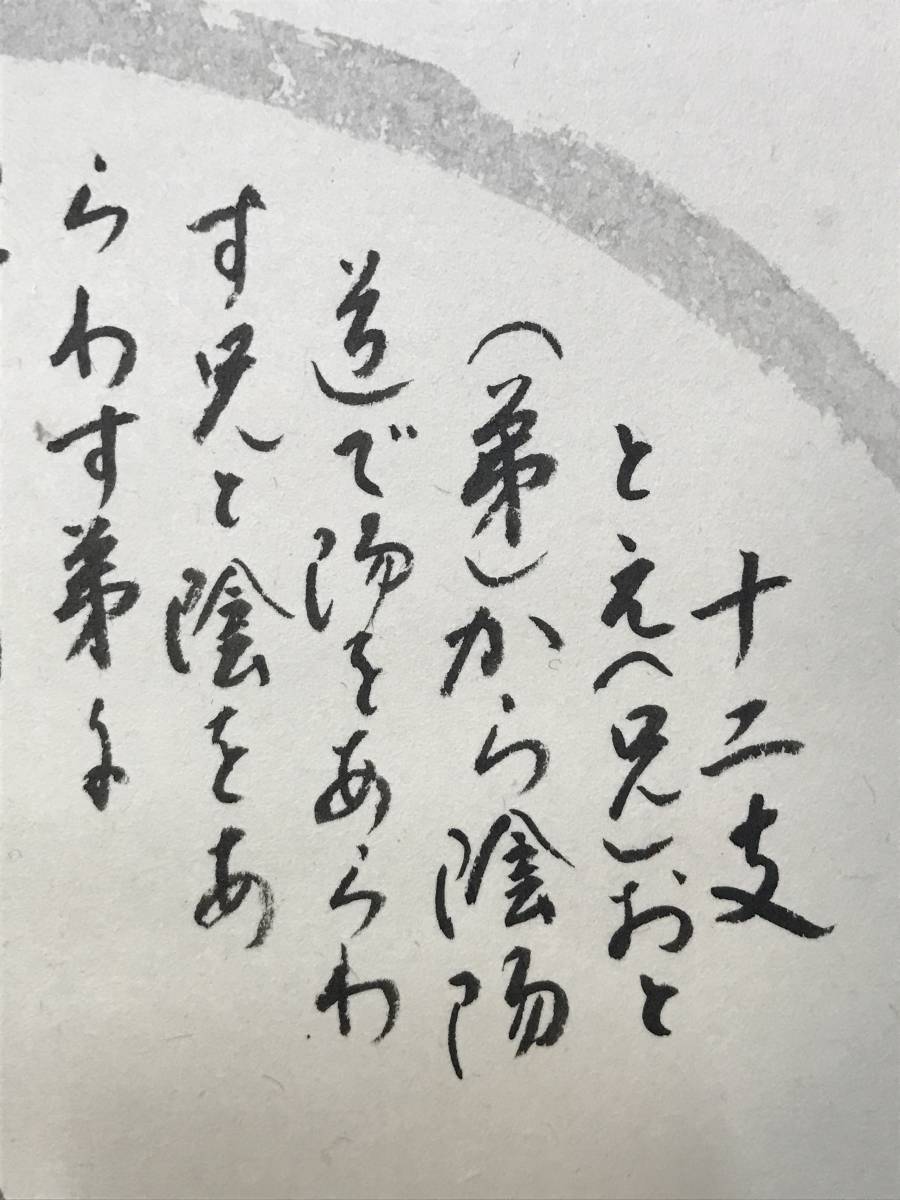 十二支
とえ(兄)おと
(弟)から陰陽
道で陽をあらわ
す兄と陰をあ
らわす弟に